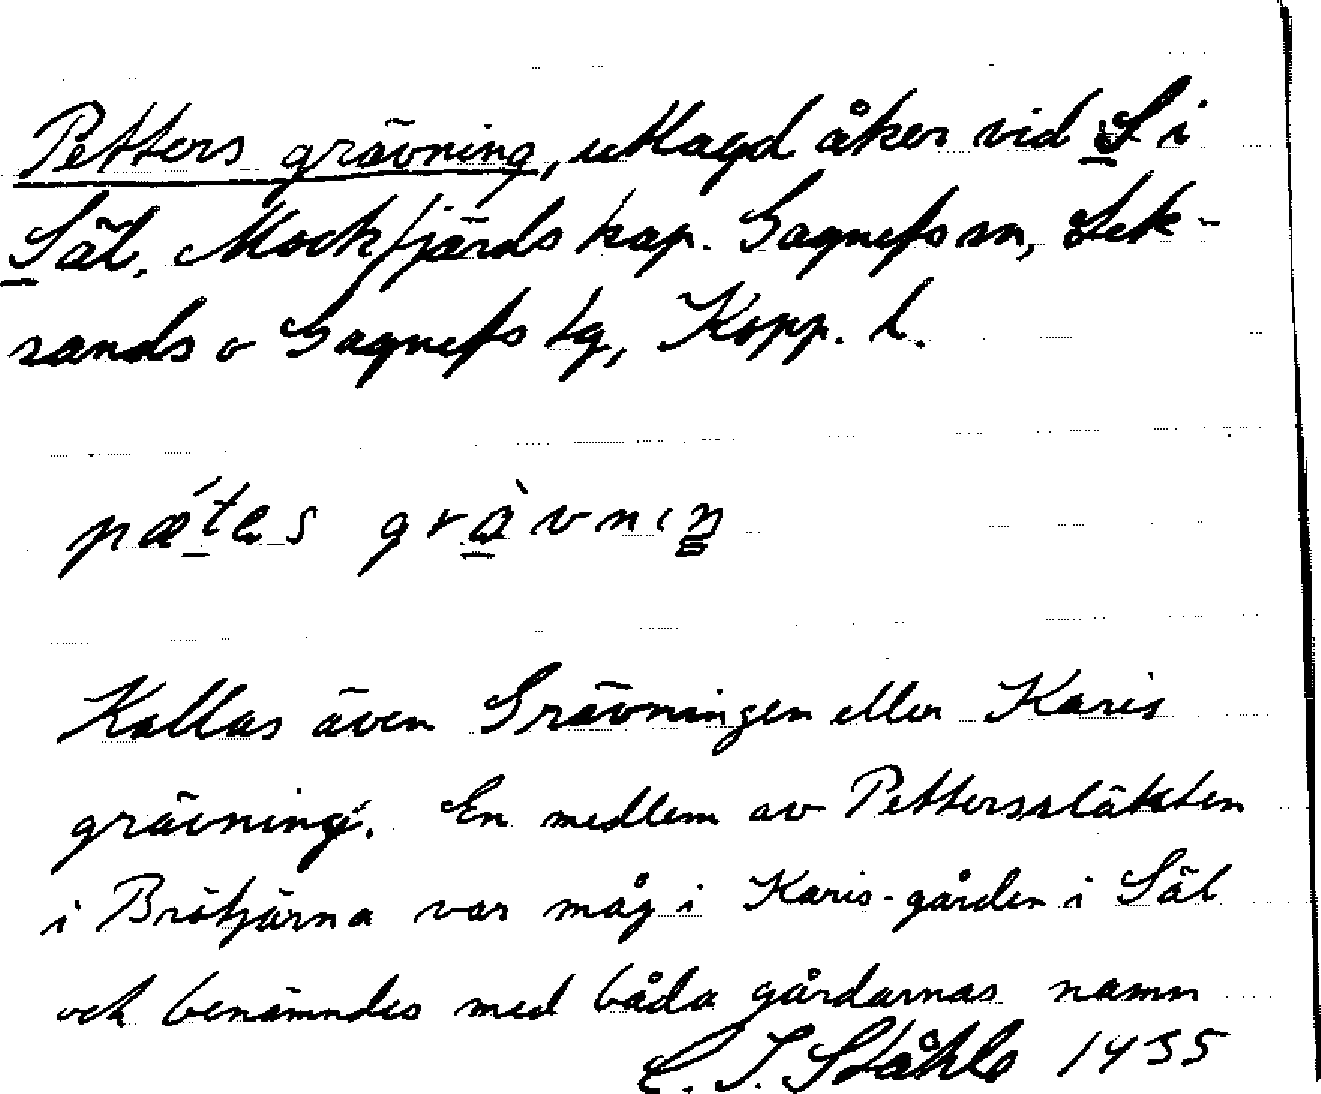 Petters grävning, utlagd åker vid S i
Säl, Mockfjärds kap. Gagnefs sn, Lek-
sands o Gagnefs tg, Kopp. l.
pǽtes gràvniŋ
Kallas även Grävningen eller Karis
grävning. En medlem av Petterssläkten
i Brötjärna var måg i Karis-gården i Säl
och benämndes med båda gårdarnas namn
C. I. Ståhle 1935